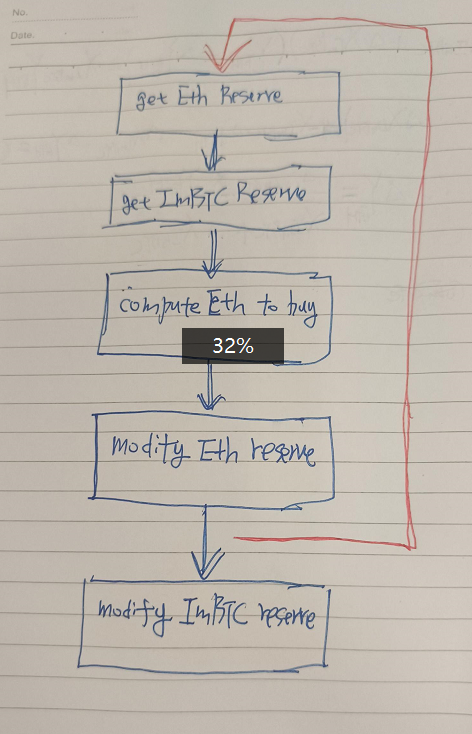 No.
Date.
get Eth Reserve
get ImBTC Reserve
compute Eth to buy
32%
modify Eth reserve
modify ImBTC reserve